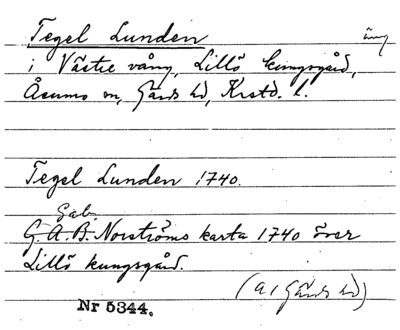 Tegel Lunden äng
i Västre vång, Lillö kungsgård,
Åsums sn, Gärds hd, Krstd. l.
Tegel Lunden 1740.
Gab.
G. A. B. Norströms karta 1740 över
Lillö kungsgård.
(a 1 Gärds hd)
Nr 5344.